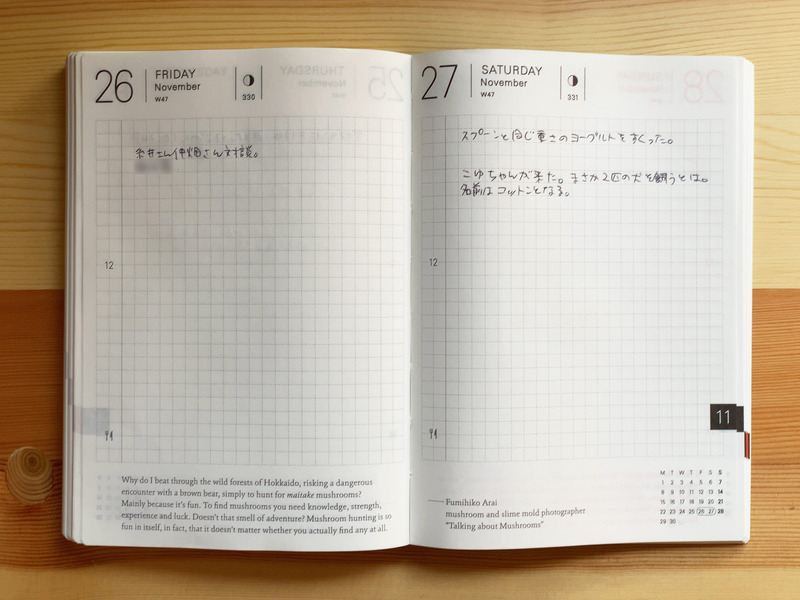 26
FRIDAY
November
W47
330
糸井さん仲畑さん対談。
12
Why do I beat through the wild forests of Hokkaido, risking a dangerous
encounter with a brown bear, simply to hunt for maitake mushrooms?
Mainly because it's fun. To find mushrooms you need knowledge, strength,
experience and luck. Doesn't that smell of adventure? Mushroom hunting is so
fun in itself, in fact, that it doesn't matter whether you actually find any at all.
27
SATURDAY
November
W47
331
スプーンと同じ重さのヨーグルトをすくった。
こゆちゃんが来た。まさか2匹の犬を飼うとは。
名前はコットンとなる。
12
11
—— Fumihiko Arai
mushroom and slime mold photographer
"Talking about Mushrooms"
M T W T F S S
1 2 3 4 5 6 7
8 9 10 11 12 13 14
15 16 17 18 19 20 21
22 23 24 25 26 27 28
29 30